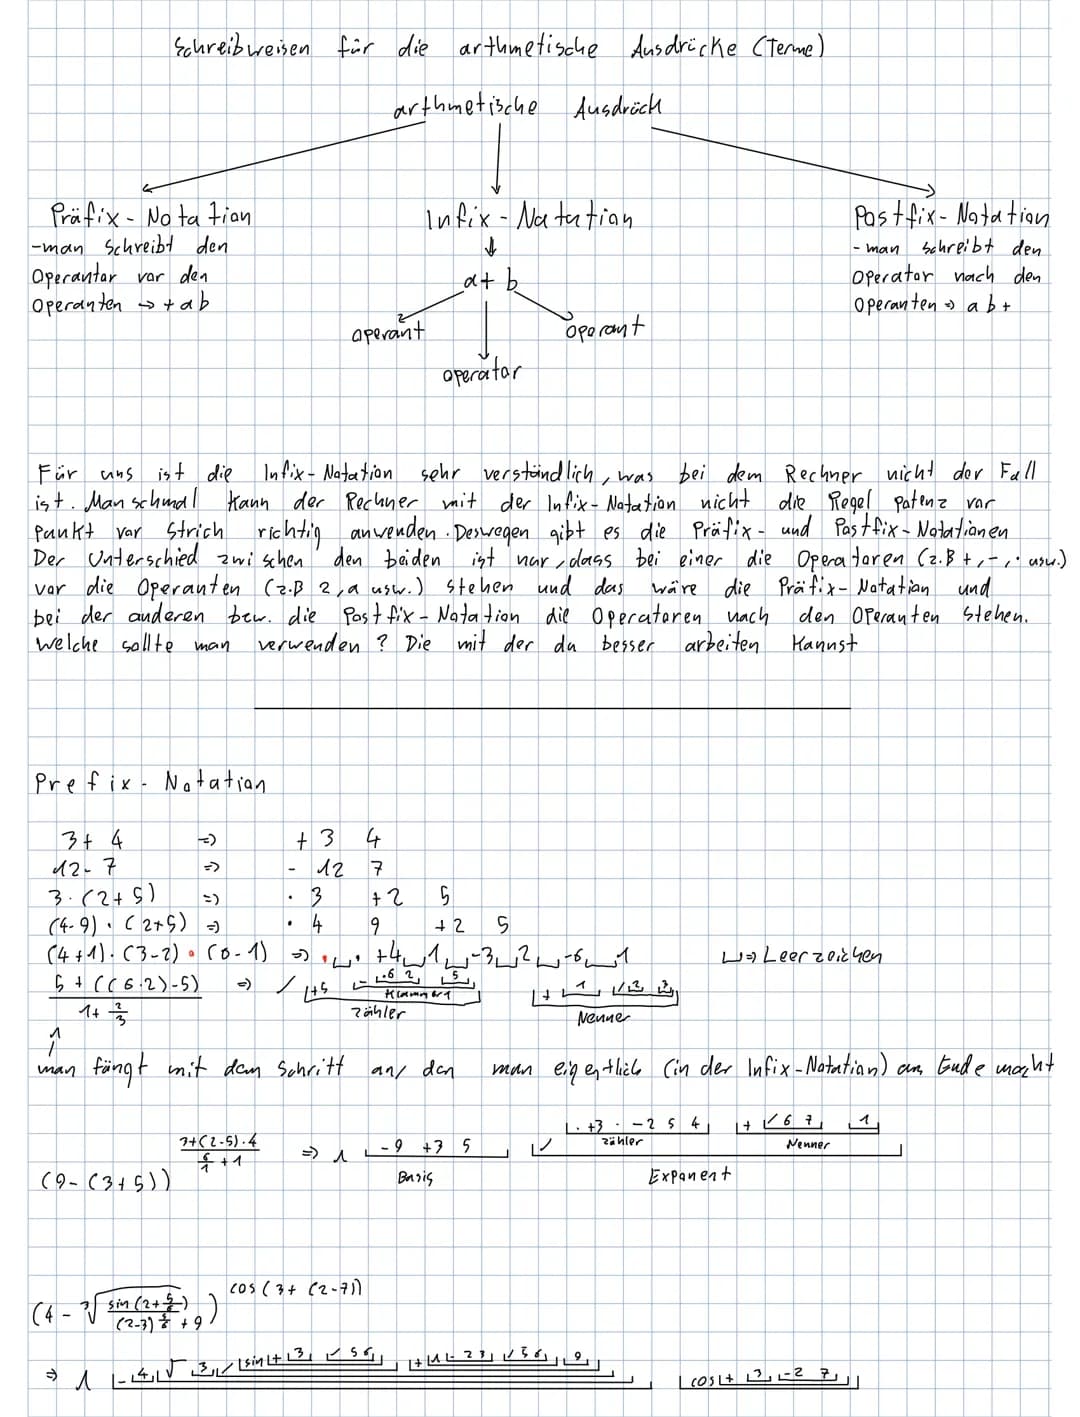 Schreibweisen für die arthmetische Ausdrücke (Terme)
arthmetische Ausdrück
Präfix-Notation
-man Schreibt den
Operantor vor den
Operanten → + a b
Infix-Notation
a + b
operant
operator
operant
Postfix-Notation
- man schreibt den
Operator nach den
Operanten ⇒ a b +
Für uns ist die Infix-Notation sehr verständlich, was bei dem Rechner nicht der Fall
ist. Manschmal kann der Rechner mit der Infix-Notation nicht die Regel Potenz vor
Punkt vor Strich richtig anwenden. Deswegen gibt es die Präfix- und Postfix-Notationen
Der Unterschied zwischen den beiden ist nur, dass bei einer die Operatoren (z.B +, -, · usw.)
vor die Operanten (z.B 2, a usw.) stehen und das wäre die Präfix-Notation und
bei der anderen bzw. die Postfix-Notation die Operatoren nach den Operanten stehen.
Welche sollte man verwenden? Die mit der du besser arbeiten Kannst
Prefix-Notation
3+ 4 ⇒ + 3 4
12-7 ⇒ - 12 7
3·(2+5) ⇒ · 3 +2 5
(4-9)·(2+5) ⇒ · 4 9 +2 5
(4+1)·(3-2)·(6-1) ⇒ ·␣· +4␣1␣-3␣2␣-6␣1 ␣⇒ Leerzeichen
5 + ((6·2)-5) ⇒ / +5 - ·6 2 5 + 1 / 2 3
1+ 2/3 Klammer 1
Zähler Nenner
man fängt mit dem Schritt an, den man eigentlich (in der Infix-Notation) am Ende macht
7+(2-5)·4 ⇒ ^ -9 +3 5 / · +3 · -2 5 4 + / 6 7 1
6/1 + 1 Zähler Nenner
(9-(3+5)) Basis Exponent
cos(3+(2-7))
(4 - ³√ sin(2+5/6) )
(2-3) 5/6 + 9
⇒ ^ - 4 √ 3 / sin + 3 / 5 6 + ^ - 2 3 / 5 6 9 cos + 3 -2 7